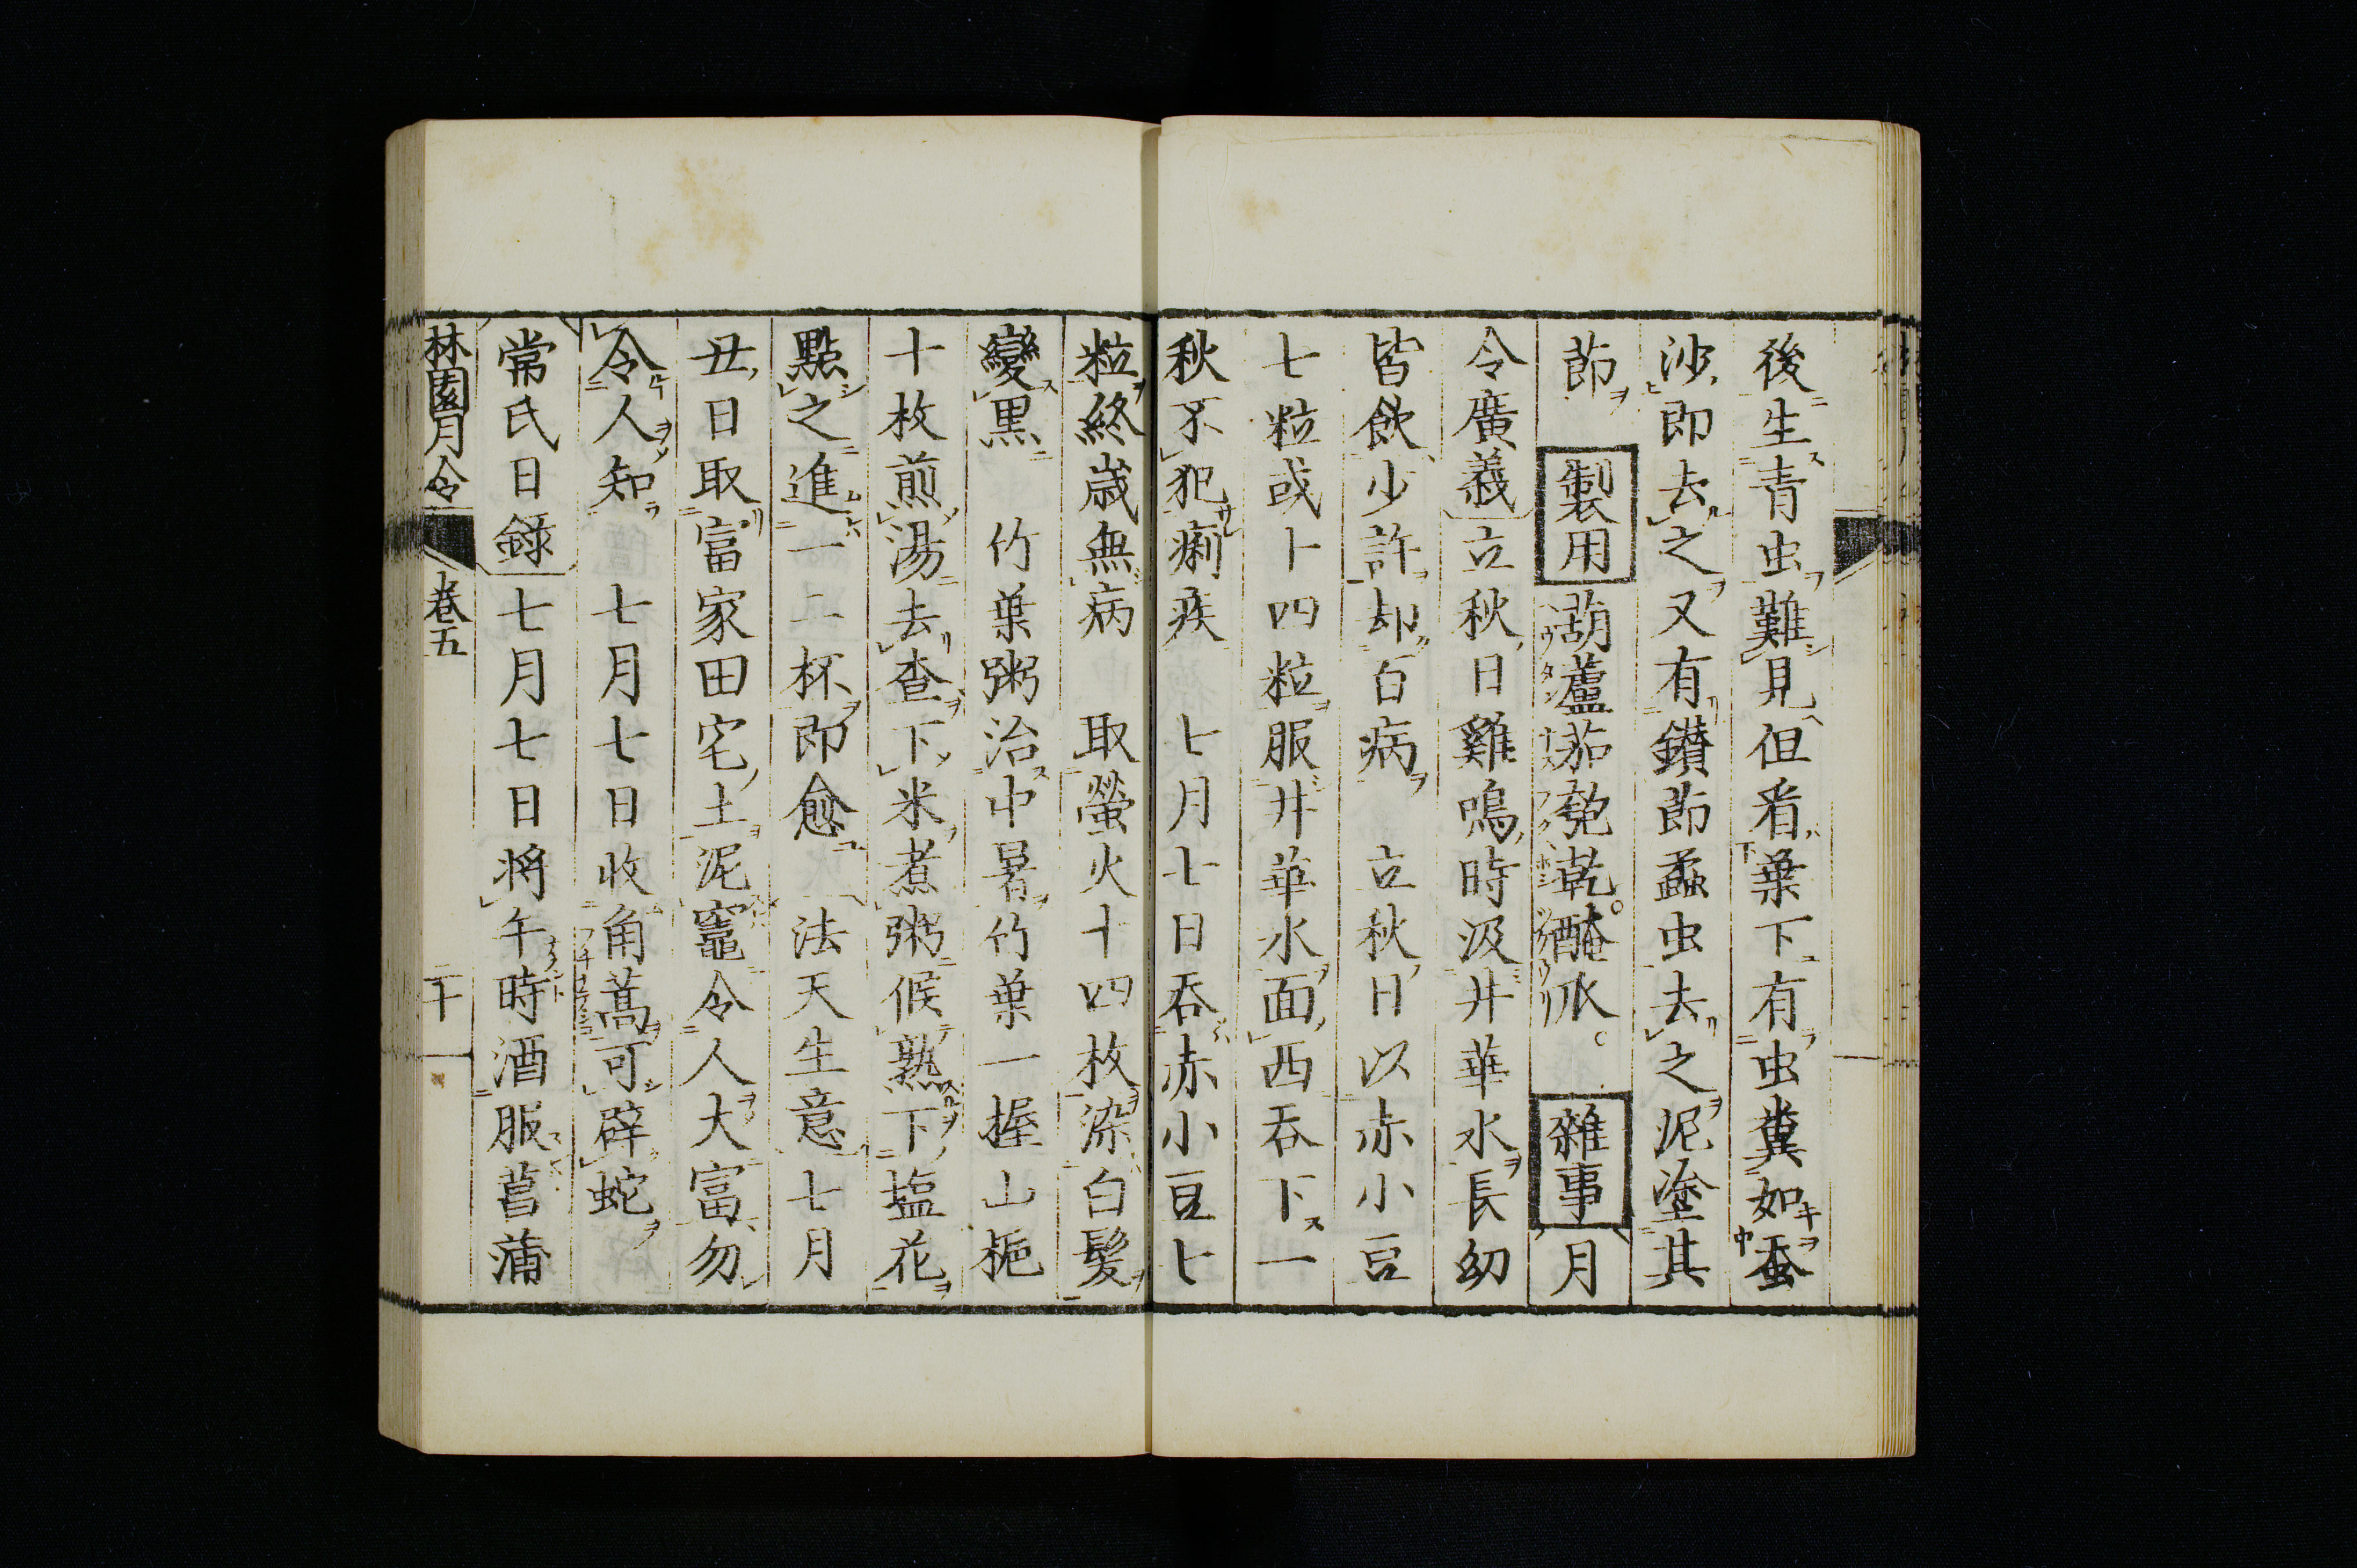 後生青虫難見但看葉下有虫糞如蚕
沙即去之又有鑚節蟊虫去之泥塗其
節 製用 葫蘆茄匏乾。醃瓜。 雜事 月
令廣義立秋日雞鳴時汲井華水長幼
皆飲少許却百病 立秋日以赤小豆
七粒或十四粒服井華水面西吞下一
秋不犯痢疾 七月七日吞赤小豆七
粒終歳無病 取螢火十四枚染白髪
變黒 竹葉粥治中暑竹葉一握山梔
十枚煎湯去査下米煮粥候熟下塩花
點之進一二杯即愈 法天生意七月
丑日取富家田宅土泥竈令人大富勿
令人知 七月七日收角蒿可辟蛇
常氏日録七月七日將午時酒服菖蒲
林園月令 巻五 二十一